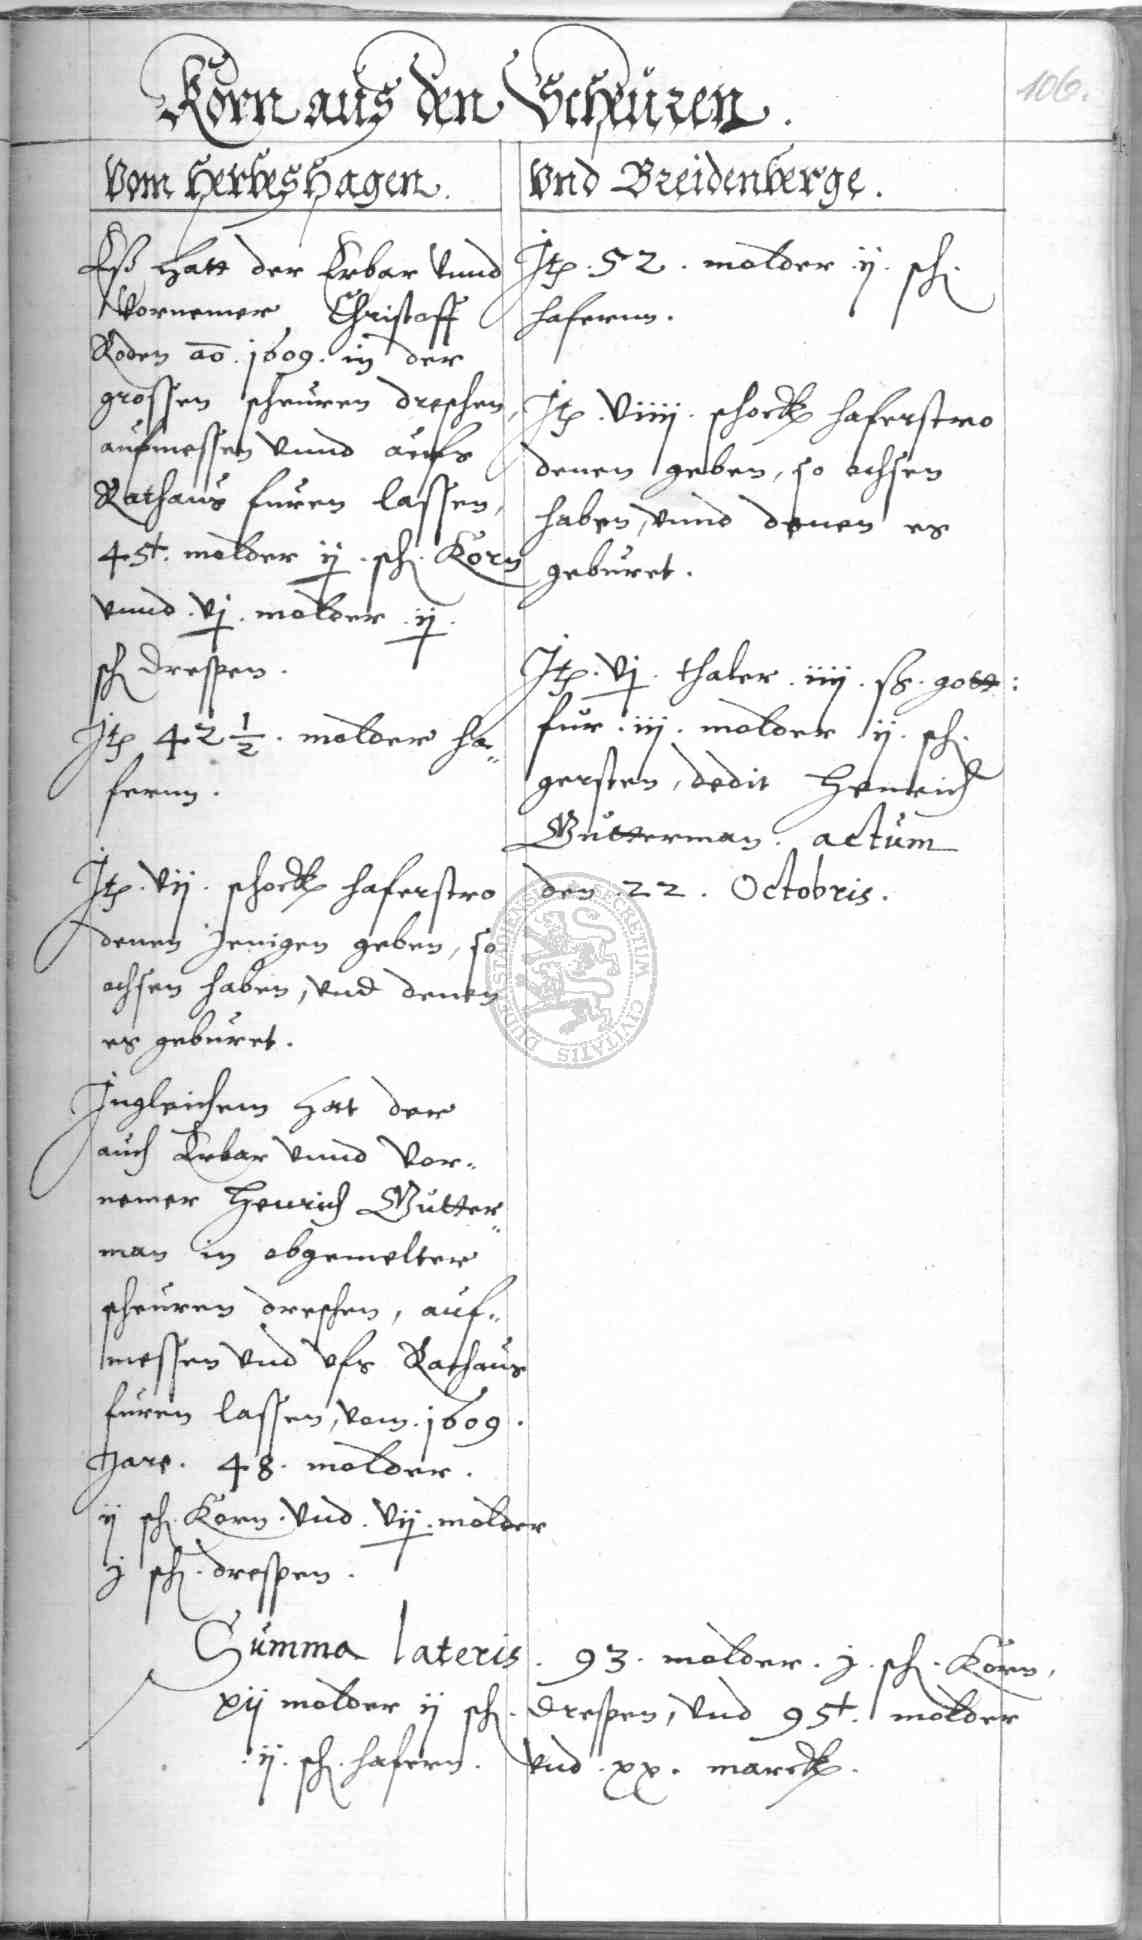 Korn aus den Scheuren.
106.
Vom Herbeshagen.
Eß hatt der Erbar vnnd
Vornemer Christoff
Roden ao. 1609. in der
grossen scheuren dreschen,
aufmessen vnnd aufs
Rathaus furen lassen,
45t. molder ij. sch. Korn
vnnd . vj . molder . ij .
sch drespen.
Itp 42 1/2 . molder ha„
fernn.
Itp . vij . schock haferstro
denen jenigen geben, so
ochsen haben, vnd denen
es geburet.
Ingleichem hat der
auch Erbar vnnd Vor„
nemer Henrich Gutter„
man in obgemelter
scheuren dreschen, auf„
messen vnd vfs Rathaus
furen lassen, vom . 1609 .
Jare . 48 . molder .
ij sch. Korn . vnd . vij . molder
j sch. drespen .
Vnd Breidenberge.
Itp . 52 . molder . ij . sch.
hafernn.
Itp . viiij . schock haferstro
denen geben, so ochsen
haben, vnnd denen es
geburet.
Itp . vj . thaler . iiij . ß. gott:
fur . iij . molder ij . sch.
gersten, dedit Henrich
Gutterman . actum
den . 22 . Octobris.
Summa lateris . 93 . molder . j . sch. Korn,
xij molder ij sch. drespen, vnd 95t. molder
. ij . sch. hafern . vnd . xx . marck.
DUDERSTADIENSIS SECRETUM CIVITATIS